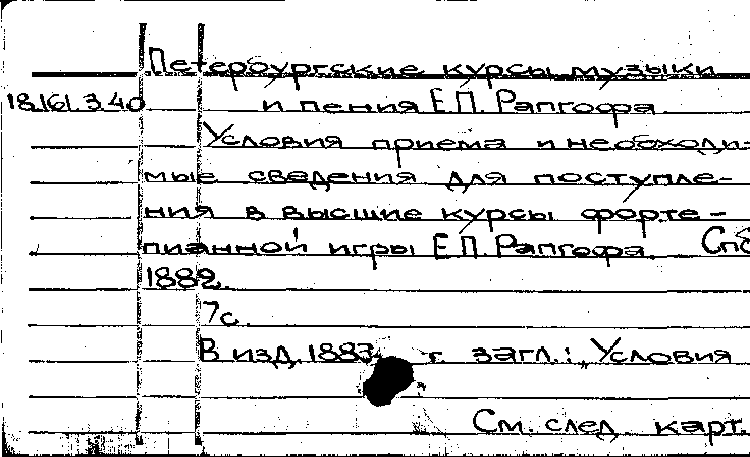 Петербургские курсы музыки
18.161.3.40 и пения Е.П. Рапгофа
Условия приема и необходи-
мые сведения для поступле-
ния в высшие курсы форте-
пианной игры Е.П. Рапгофа. Спб
1882.
7с.
В изд. 1883 г. загл.: „Условия
См. след. карт.